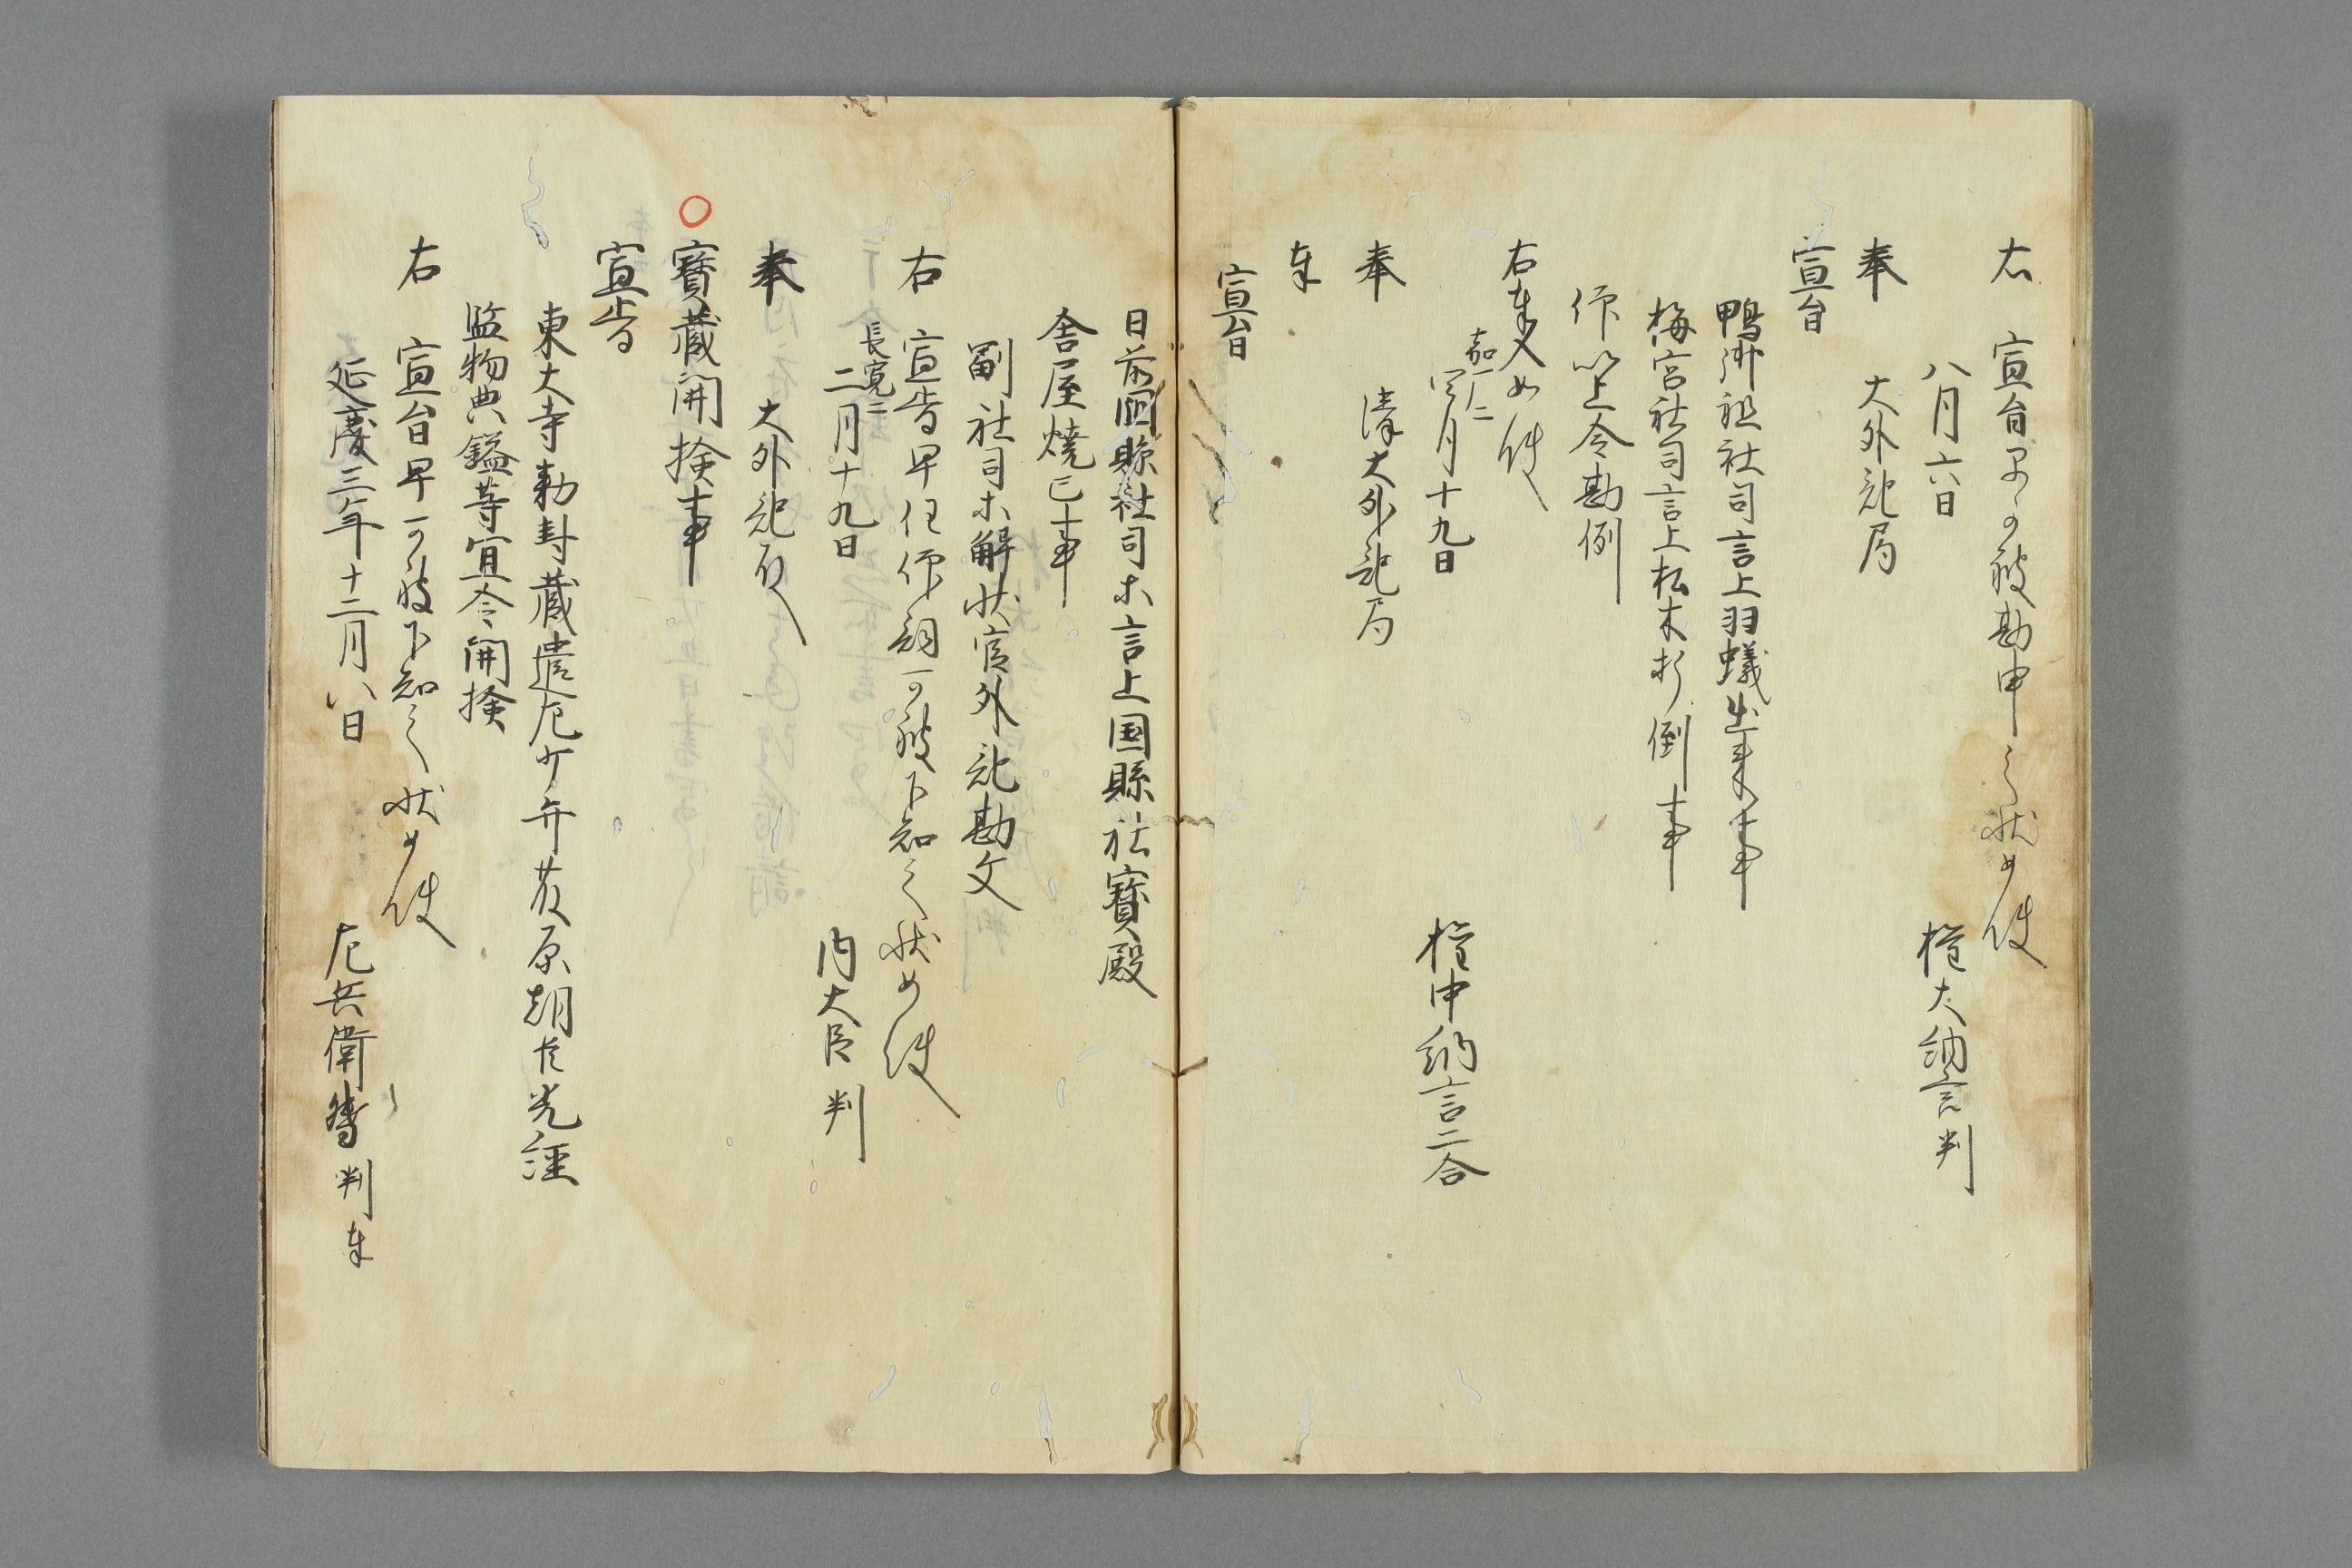 右　宣旨早可被勘申之状如件
八月六日　　権大納言判
奉　大外記局
宣旨
鴨御祖社司言上羽蟻出来事
梅宮社司言上松木折倒事
仰以上令勘例
右奉入如件
嘉二二
四月十九日　　権中納言二合
奉　清大外記局
奉
宣旨
日前国縣社司木言上国縣社寳殿
舎屋焼亡事
副社司木解状官外記勘文
右　宣旨早任仰詞可被下知之状如件
長寛二
二月十九日　　内大臣判
奉　大外記
○寳蔵開検事
宣旨
東大寺勅封蔵遣左少弁藤原朝臣光経
監物典鎰等宜令開検
右　宣旨早可被下知之状如件
延慶三年十二月八日　　左兵衛督判奉